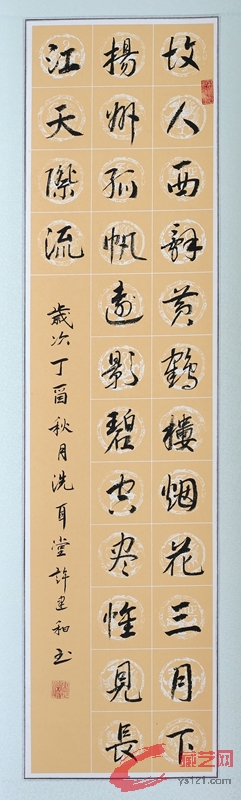 故人西辭黄鶴樓烟花三月下
揚州孤帆遠影碧空尽惟見長
江天際流
歲次丁酉秋月洗耳堂許建和书